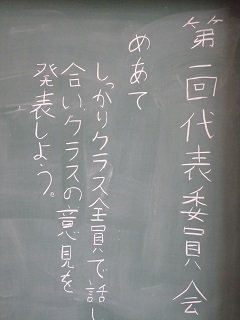 第一回代表委員会
めあて
しっかりクラス全員で話し
合いクラスの意見を
発表しよう。